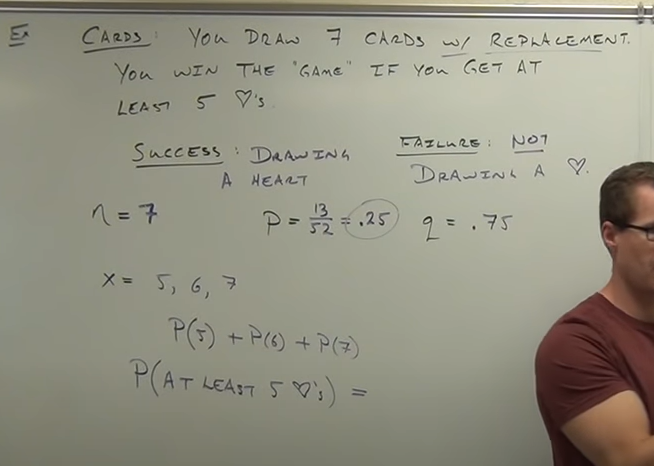 Ex CARDS: YOU DRAW 7 CARDS W/ REPLACEMENT.
YOU WIN THE "GAME" IF YOU GET AT
LEAST 5 ♡'s.
SUCCESS: DRAWING
A HEART
FAILURE: NOT
DRAWING A ♡.
n = 7
p = 13/52 = .25
q = .75
x = 5, 6, 7
P(5) + P(6) + P(7)
P(AT LEAST 5 ♡'s) =